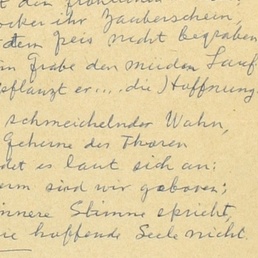 ihr Zauberschein,
dem Greis nicht begraben
Grabe den müden Lauf
pflanzt er....die) Hoffnung
schmeichelnder Wahn,
Gehirne des Thoren
es laut sich an:
sind wir geboren;
innere Stimme spricht,
hoffende Seele nicht.